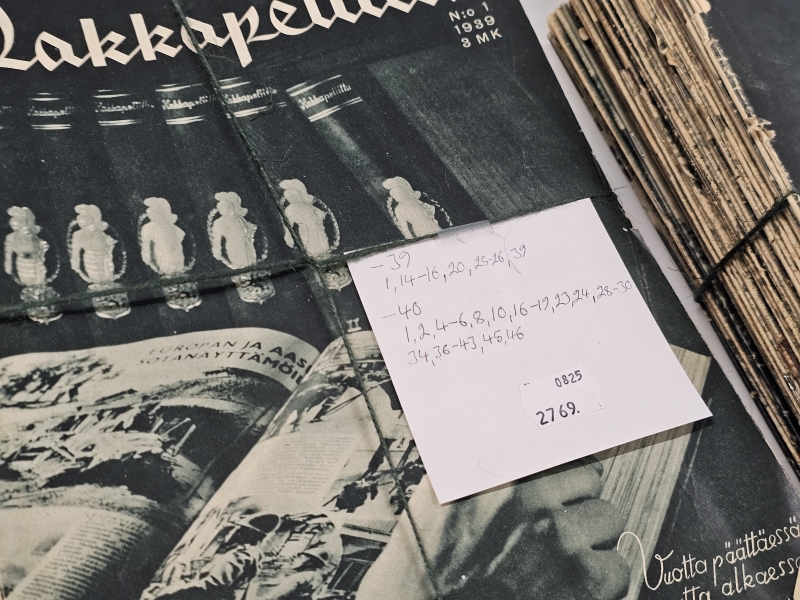 Hakkapeliitta
N:o 1
1939
3 MK
Hakkapeliitta Hakkapeliitta Hakkapeliitta Hakkapeliitta Hakkapeliitta
EUROPAN JA AASIAN
SOTANÄYTTÄMÖILTÄ
II
-39
1, 14-16, 20, 25-26, 39
-40
1, 2, 4-6, 8, 10, 16-19, 23, 24, 28-30
34, 36-43, 45, 46
0825
2769.
Vuotta päättäessä
tta alkaessa